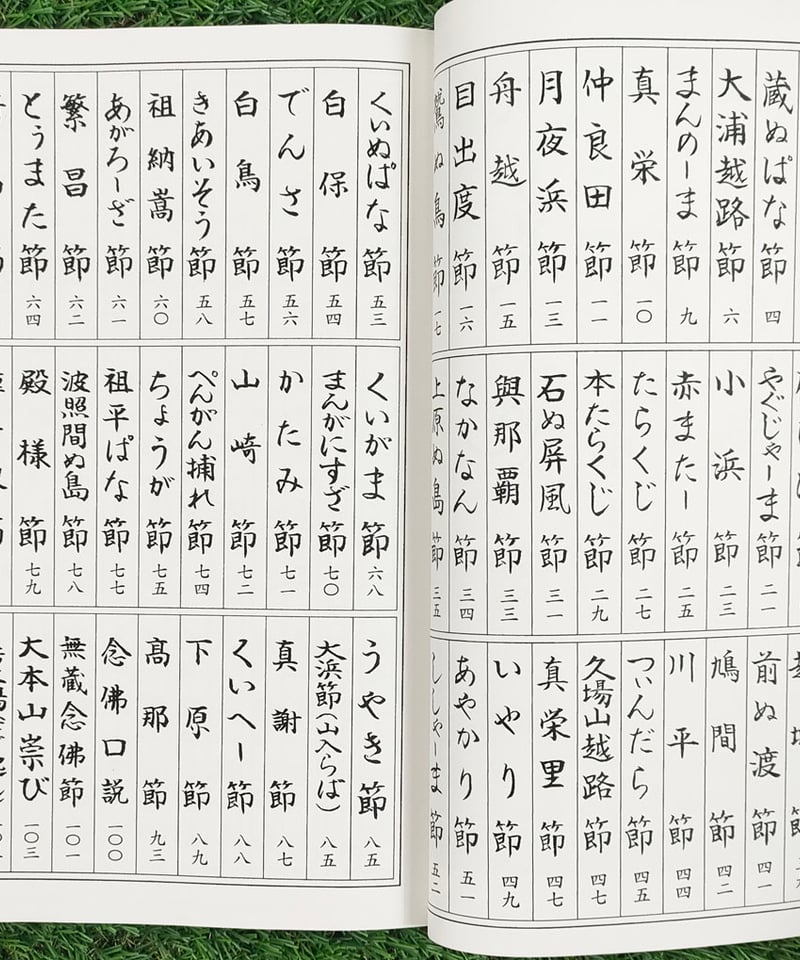 蔵ぬぱな節 四
大浦越路節 六
まんのーま節 九
真栄節 一〇
仲良田節 一一
月夜浜節 一三
舟越節 一五
目出度節 一六
鷲ぬ鳥節 一七
やぐじゃーま節 二一
小浜節 二三
赤またー節 二五
たらくじ節 二七
本たらくじ節 二九
石ぬ屏風節 三一
與那覇節 三三
なかなん節 三四
上原ぬ島節 三五
前ぬ渡節 四一
鳩間節 四二
川平節 四四
つぃんだら節 四五
久場山越路節 四七
真栄里節 四七
いやり節 四九
あやかり節 五一
ししゃーま節 五二
くいぬぱな節 五三
白保節 五四
でんさ節 五六
白鳥節 五七
きあいそう節 五八
祖納嵩節 六〇
あがろーざ節 六一
繁昌節 六二
とぅまた節 六四
くいがま節 六八
まんがにすざ節 七〇
かたみ節 七一
山崎節 七二
ぺんがん捕れ節 七四
ちょうが節 七五
祖平ぱな節 七七
波照間ぬ島節 七八
殿様節 七九
うやき節 八五
大浜節(山入らば) 八五
真謝節 八七
くいへー節 八八
下原節 八九
髙那節 九三
念佛口説 一〇〇
無蔵念佛節 一〇一
大本山崇び 一〇三